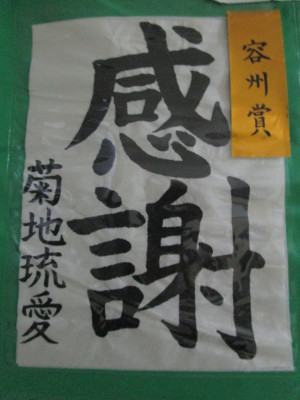 容州賞
感謝
菊地琉愛